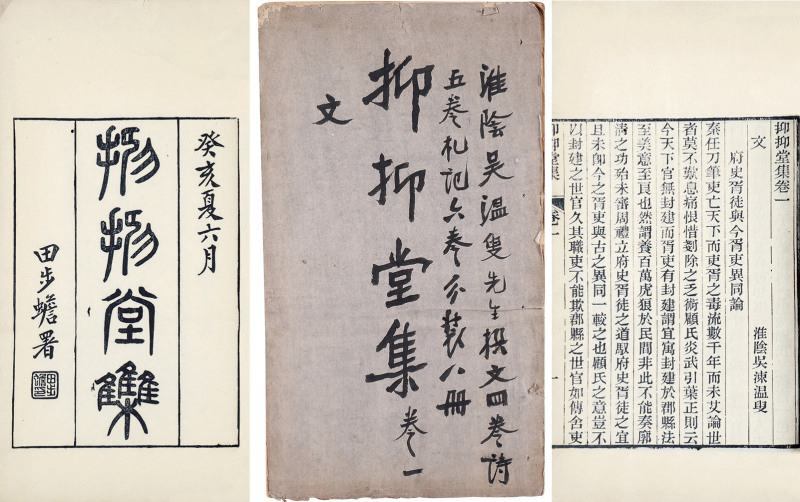 癸亥夏六月
抑抑堂集
田步蟾署
淮陰吴溫叟先生撰文四卷詩
五卷札記六卷分裝八冊
抑抑堂集 卷一
文
抑抑堂集卷一
文 淮陰吳涑溫叟
府史胥徒與今胥吏異同論
秦任刀筆吏亡天下而吏胥之毒流數千年而未艾論世
者莫不歎息痛恨惜剗除之乏術顧氏炎武引葉正則云
今天下官無封建而胥吏有封建謂宜寓封建於郡縣法
至美意至良也然謂養百萬虎狼於民間非此不能奏廓
清之功殆未審周禮立府史胥徒之道馭府史胥徒之宜
且未卽今之胥吏與古之異同一較之也顧氏之意豈不
以封建之世官久其職吏不能欺郡縣之世官如傳舍吏
抑抑堂集 卷一 一